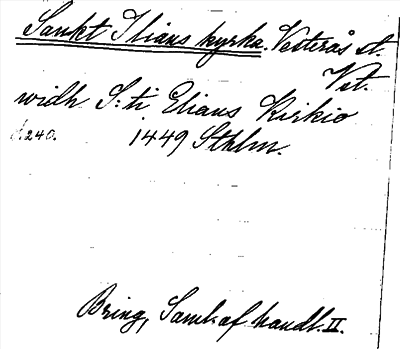 Sankt Ilians kyrka. Vesterås st.
Vst.
widh S:ti Elians Kirkio
s. 240. 1449 Sthlm.
Bring, Saml. af handl. II.